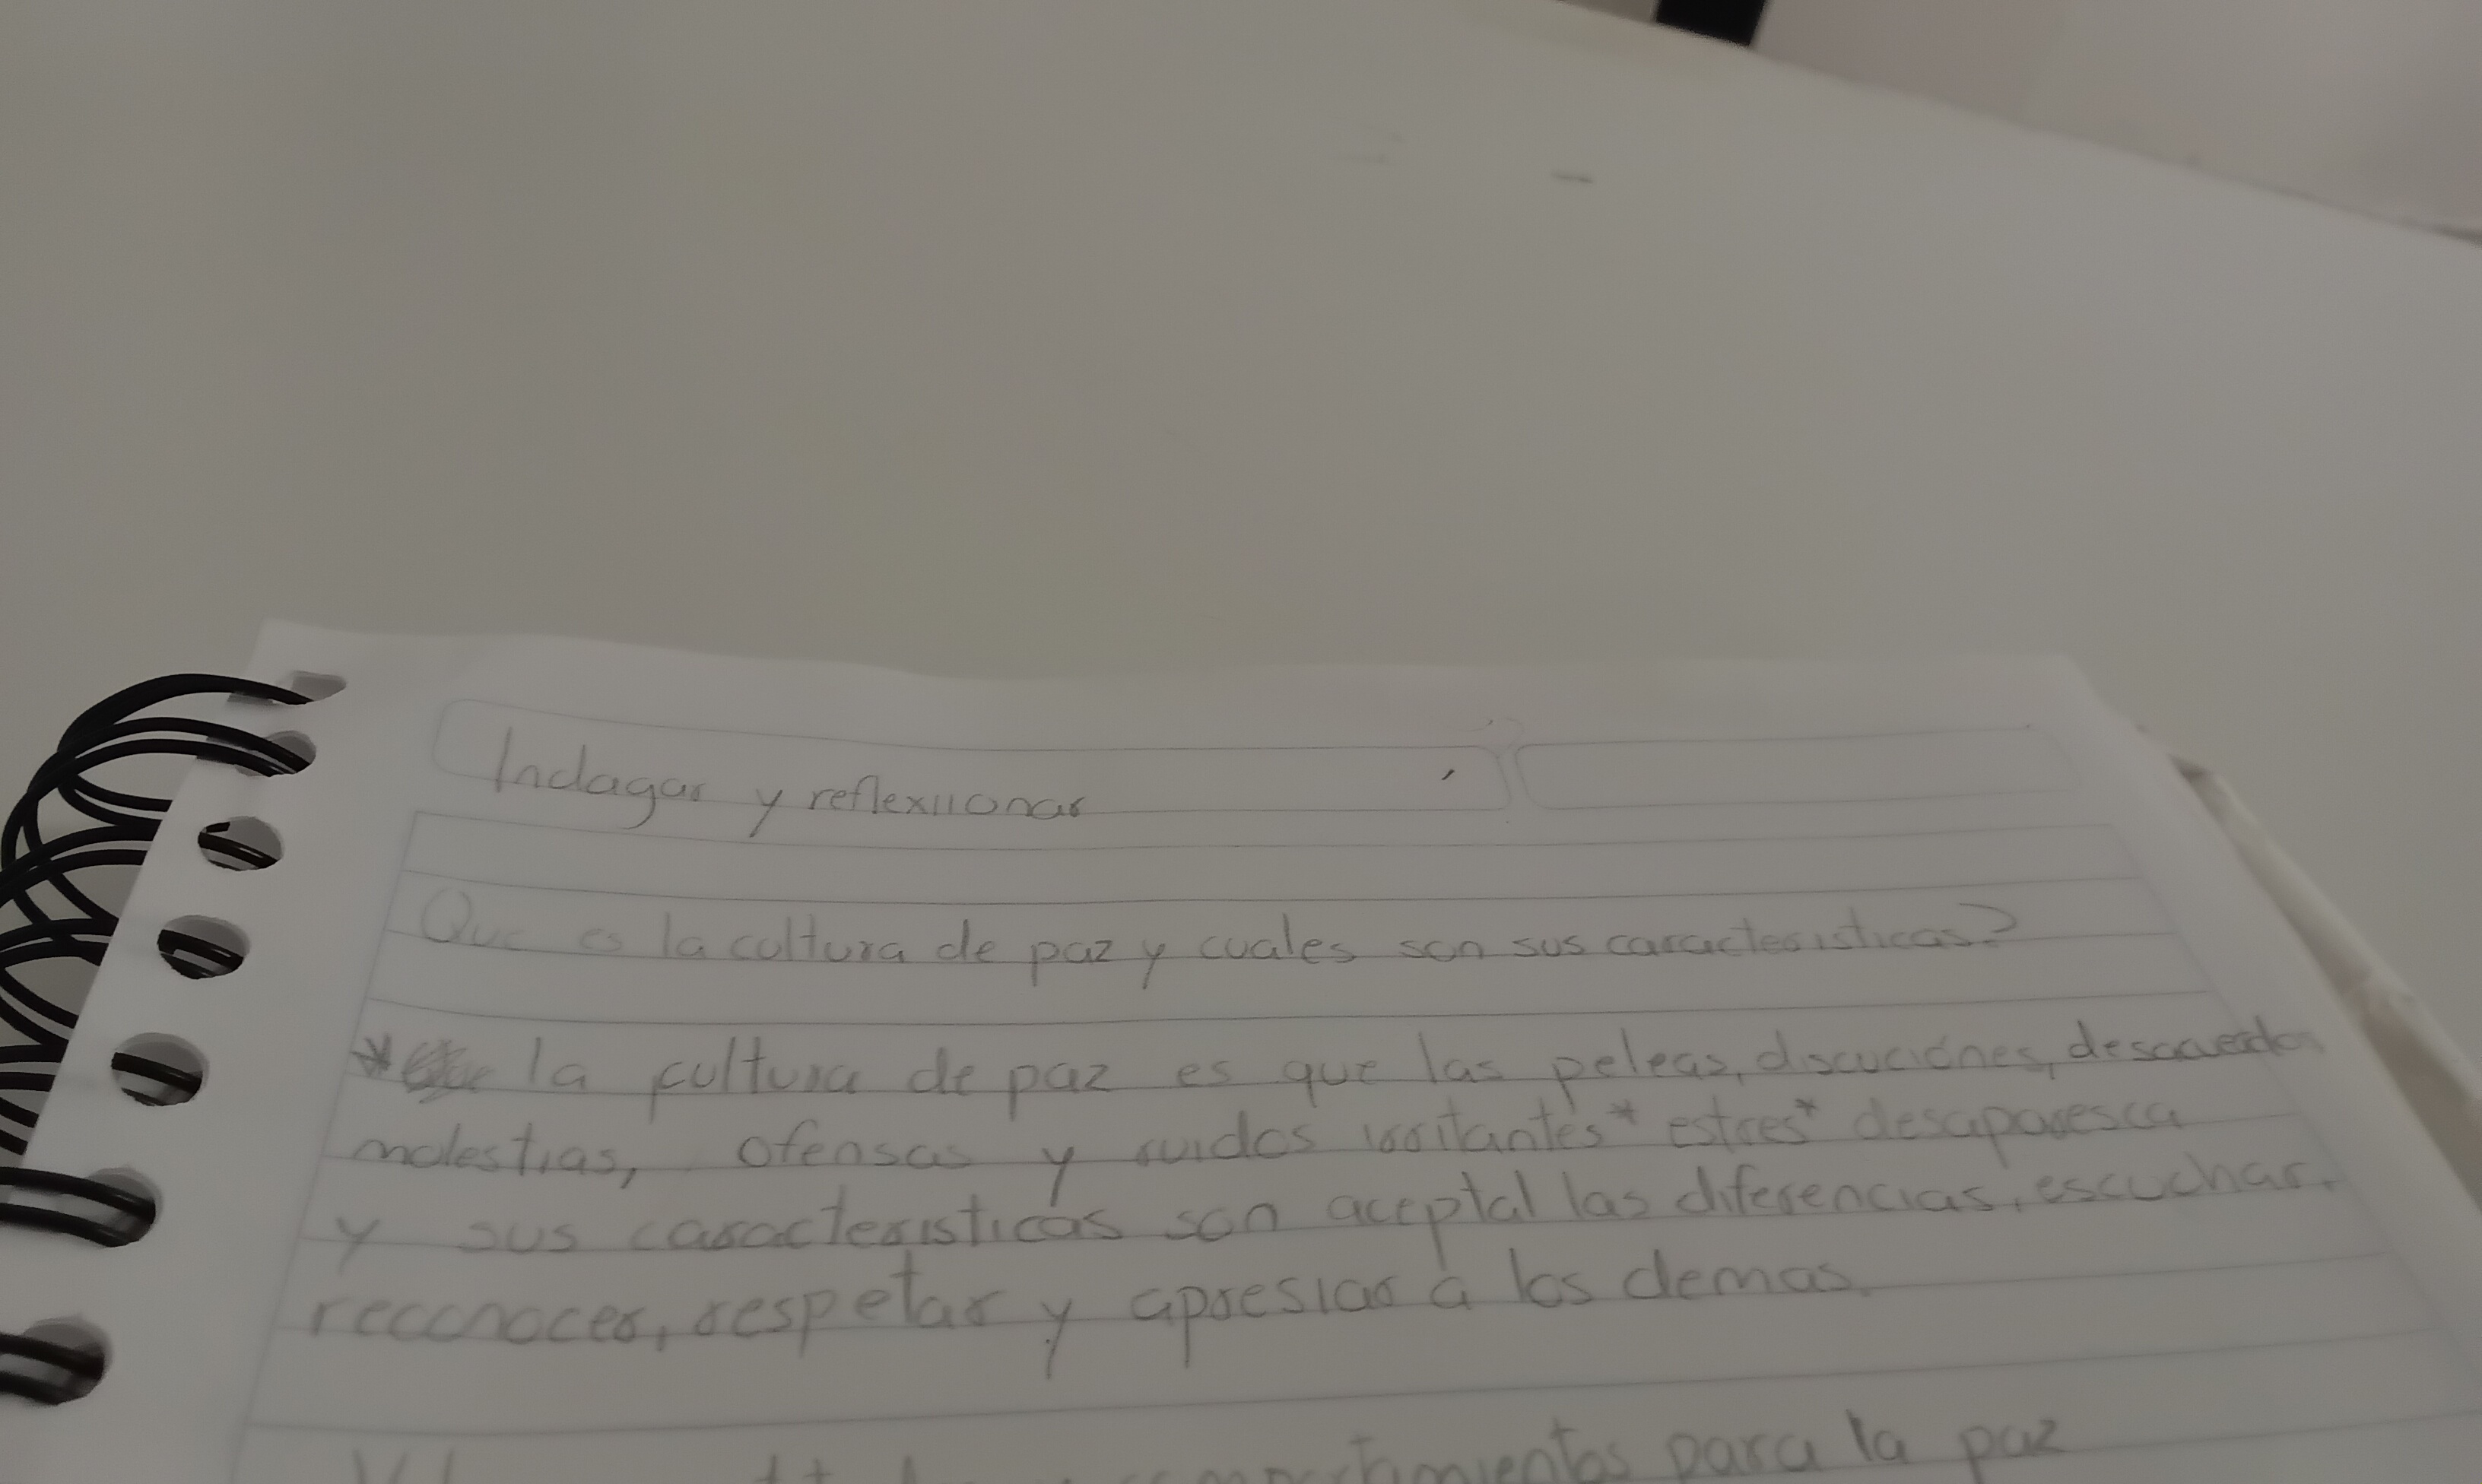 Indagar y reflexiionar
Que es la cultura de paz y cuales son sus caracteristicas?
* la cultura de paz es que las peleas, discuciones, desacuerdo
molestias, ofensas y ruidos irritantes* estres* desaparesca
y sus caracteristicas son aceptal las diferencias, escuchar,
reconocer, respetar y apresiar a los demas.
para la paz